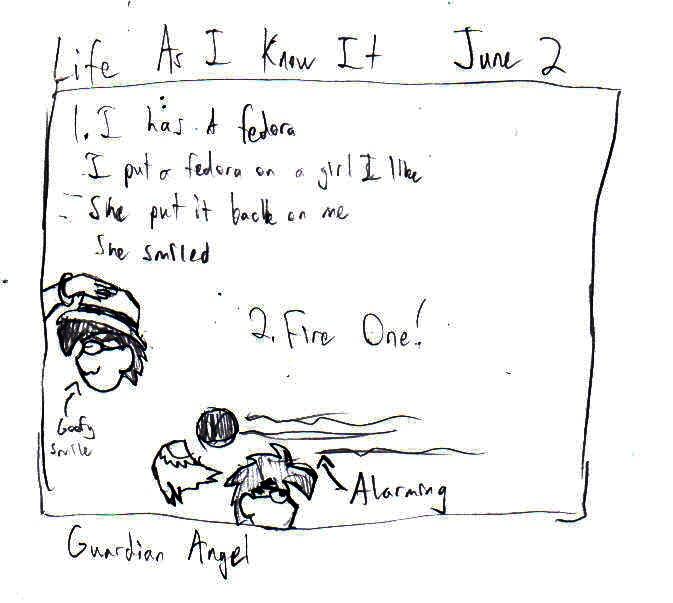 Life As I Know It June 2
1. I has A fedora
I put a fedora on a girl I like
She put it back on me
She smiled
2. Fire One!
Goofy
Smile
Alarming
Guardian Angel